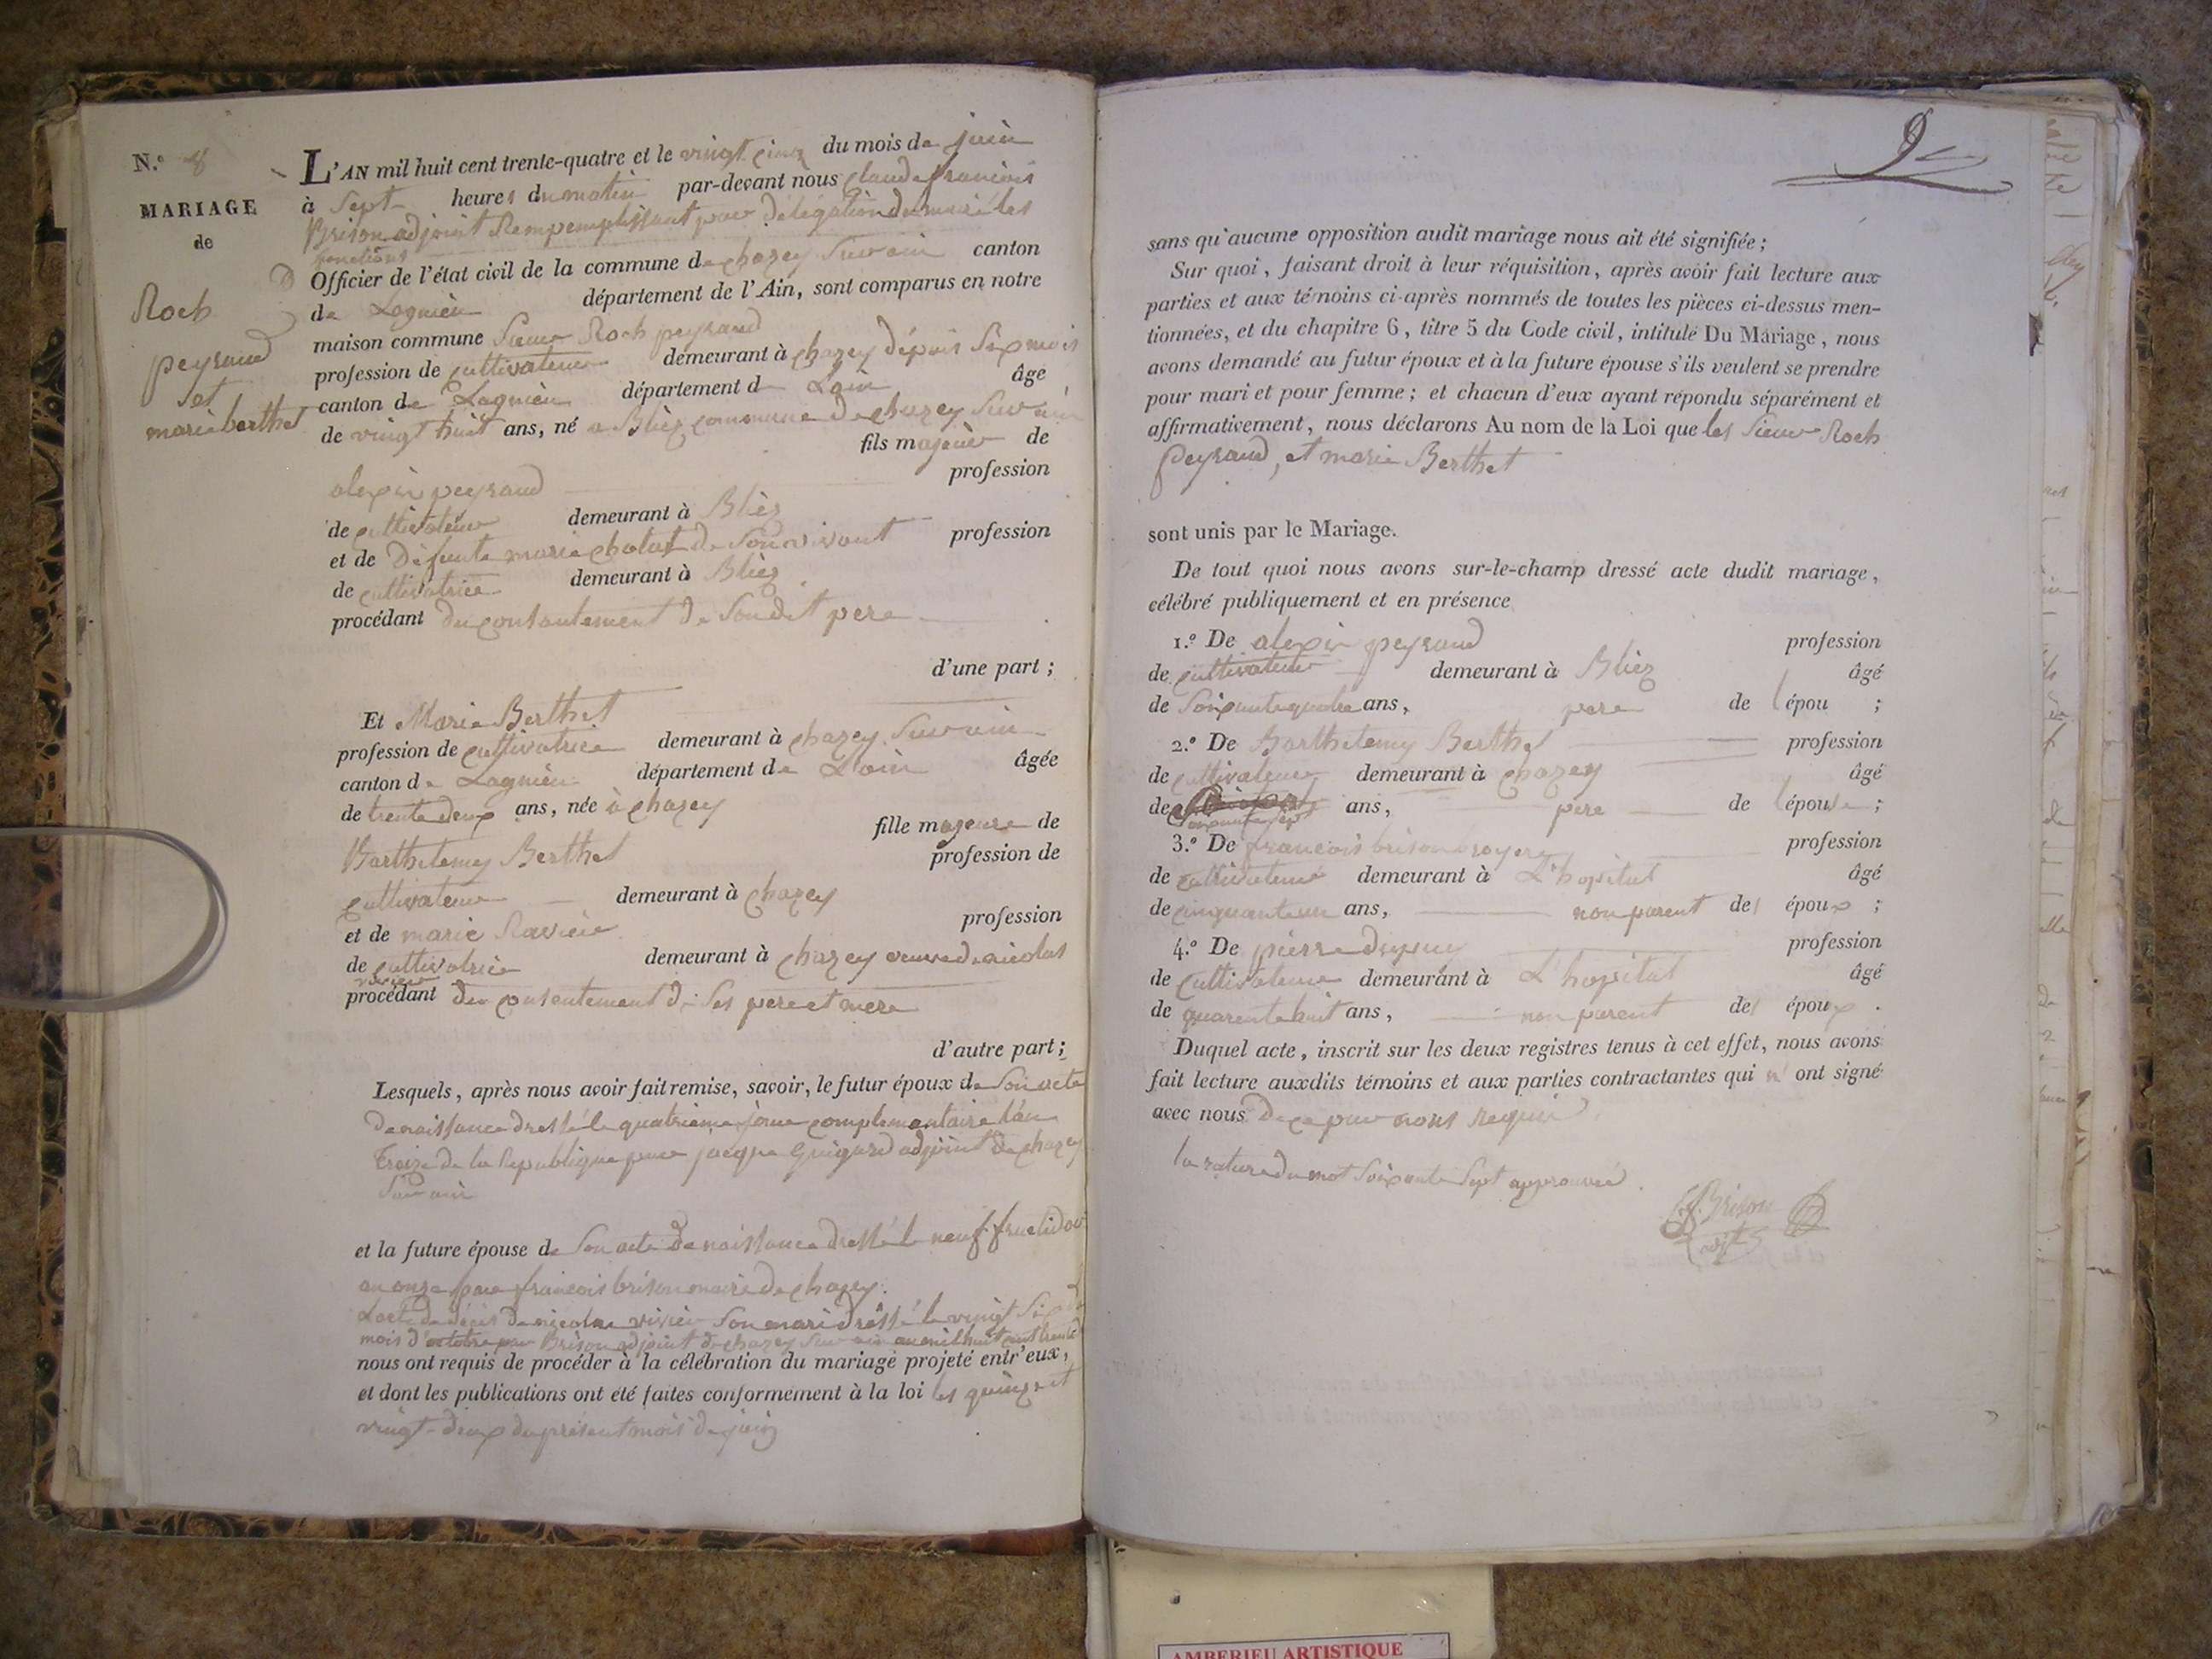 N.º 8
MARIAGE
de
Roch
peyraud
et
marie berthet
L'AN mil huit cent trente-quatre et le vingt cinq du mois de juin
à Sept heures du matin par-devant nous claude francois
Brison adjoint Remпemplissant par délégation du maire les
fonctions
Officier de l'état civil de la commune de chazey Sur ain canton
de Lagnieu département de l'Ain, sont comparus en notre
maison commune Sieur Roch peyraud
profession de cultivateur demeurant à chazey dépuis Six mois
canton de Lagnieu département d Lain âgé
de vingt huit ans, né a Blièz commune de chazey Sur ain
fils majeur de
alexis peyraud profession
de cultivateur demeurant à Blièz
et de Défunte marie cholat de Son vivant profession
de cultivatrice demeurant à Blièz
procédant du consantement de Son dit pere
d'une part ;
Et Marie Berthet
profession de cultivatrice demeurant à chazey Sur ain
canton de Lagnieu département de L'ain âgée
de trente deux ans, née à chazey
fille majeure de
Barthelemy Berthet profession de
cultivateur demeurant à chazey
et de marie Ravieré profession
de cultivatrice demeurant à chazey veuve de nicolas
vivier
procédant du consentement de Ses pere et mere
d'autre part ;
Lesquels, après nous avoir fait remise, savoir, le futur époux de Son acte
de naissance dressé le quatrieme jour complementaire l'an
Treize de la Republique par jacque Guigard adjoint de chazey
Sur ain
et la future épouse de Son acte de naissance dressé le neuf fructidor
an onze par francois brison maire de chazey.
L'acte de décès de nicolas vivier Son mari dressé le vingt Six du
mois d'octobre par Brison adjoint de chazey Sur ain an mil huit cent trente
nous ont requis de procéder à la célébration du mariage projeté entr'eux,
et dont les publications ont été faites conformément à la loi les quinze et
vingt-deux du présent mois de juin
9
sans qu'aucune opposition audit mariage nous ait été signifiée ;
Sur quoi, faisant droit à leur réquisition, après avoir fait lecture aux
parties et aux témoins ci-après nommés de toutes les pièces ci-dessus men-
tionnées, et du chapitre 6, titre 5 du Code civil, intitulé Du Mariage, nous
avons demandé au futur époux et à la future épouse s'ils veulent se prendre
pour mari et pour femme ; et chacun d'eux ayant répondu séparément et
affirmativement, nous déclarons Au nom de la Loi que les Sieur Roch
Peyraud, et marie Berthet
sont unis par le Mariage.
De tout quoi nous avons sur-le-champ dressé acte dudit mariage,
célébré publiquement et en présence
1.º De alexis peyraud profession
de cultivateur demeurant à Blièz âgé
de Soixante quatre ans, pere de l épou ;
2.º De Barthelemy Berthet profession
de cultivateur demeurant à chazey âgé
de Soixante Sept ans, pere de l épouse ;
3.º De francois brison profession
de cultivateur demeurant à L'hopital âgé
de cinquante un ans, non parent des époux ;
4.º De pierre dupuy profession
de cultivateur demeurant à L'hopital âgé
de quarente huit ans, non parent des époux .
Duquel acte, inscrit sur les deux registres tenus à cet effet, nous avons
fait lecture auxdits témoins et aux parties contractantes qui n' ont signé
avec nous de ce par nous requis
la rature du mot Soixante Sept approuvée.
Brison
adjt
AMBERIEU ARTISTIQUE